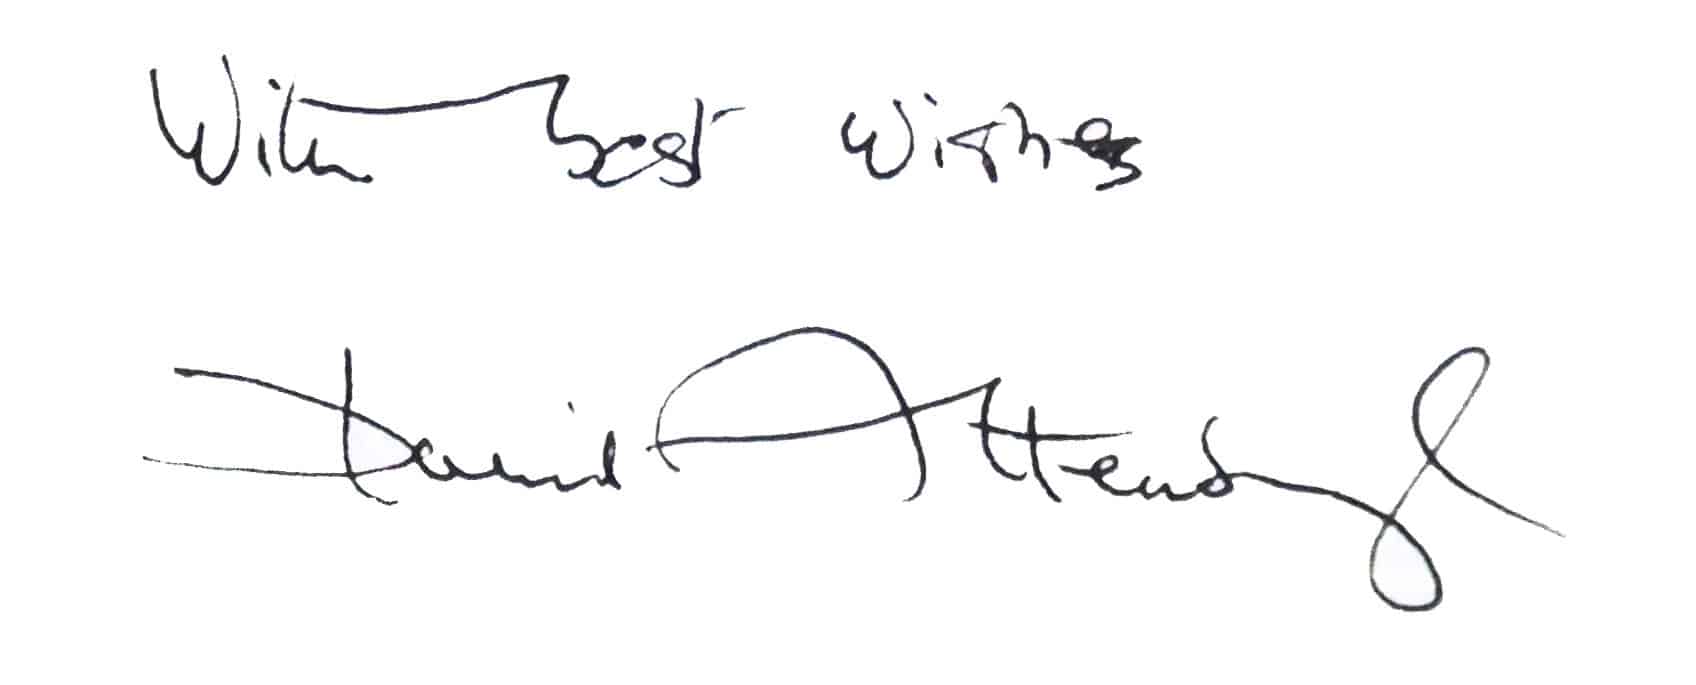 With best wishes
David Attenborough